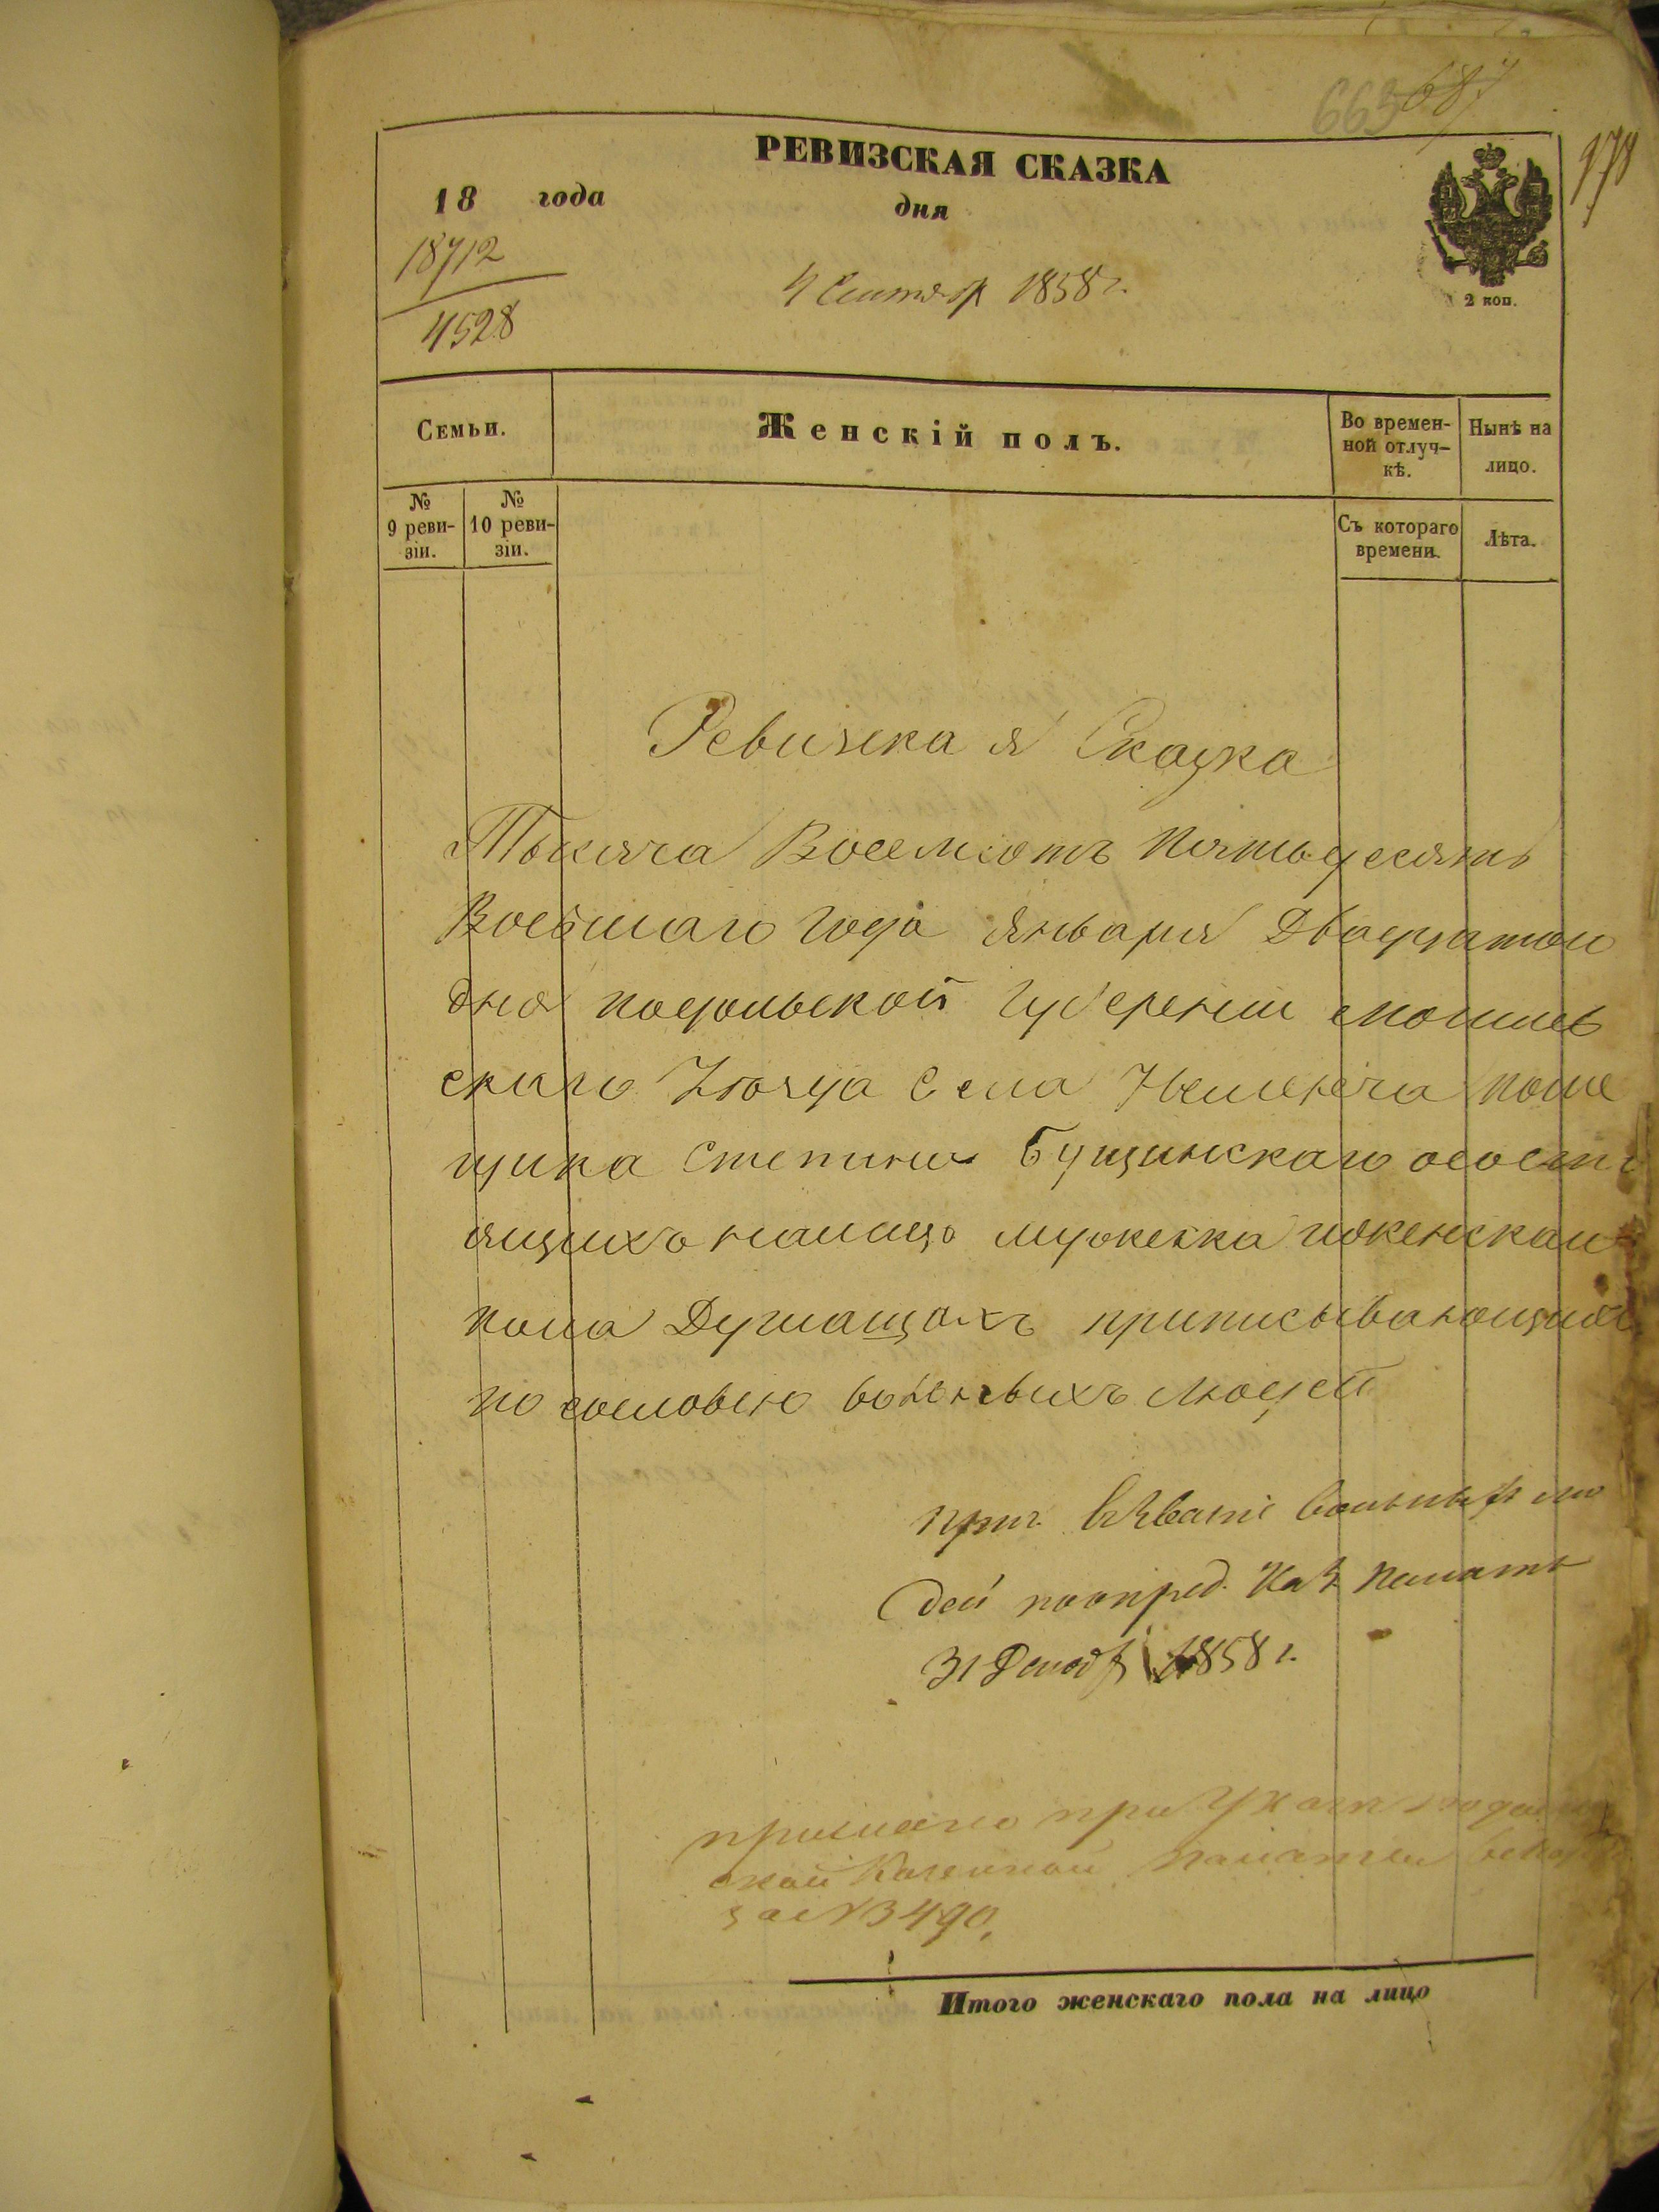 663 687
РЕВИЗСКАЯ СКАЗКА
178
18 года дня
18712
4528
4 Сентябр 1858 г.
2 коп.
Семьи.
Женскій полъ.
Во времен-
ной отлуч-
кѣ.
Нынѣ на
лицо.
№
9 реви-
зіи.
№
10 реви-
зіи.
Съ котораго
времени.
Лѣта.
Ревизская Сказка
Тысяча Восемсотъ Пятьдесятъ
Восьмаго Года Января Двадцатаго
дня Подольской Губерніи Могилев
скаго Уезда Села поме
щика Степана Бущинскаго о состо
ящихъ налицо мужеска и женскаго
пола Душащахъ приписывающихся
по сословію вольныхъ людей
прич. вольных лю
дей по опред. Каз. Палаты
31 Декаб 1858 г.
прислано при Указе Подоль
ской Казенной Палаты
за № 3490.
Итого женскаго пола на лицо